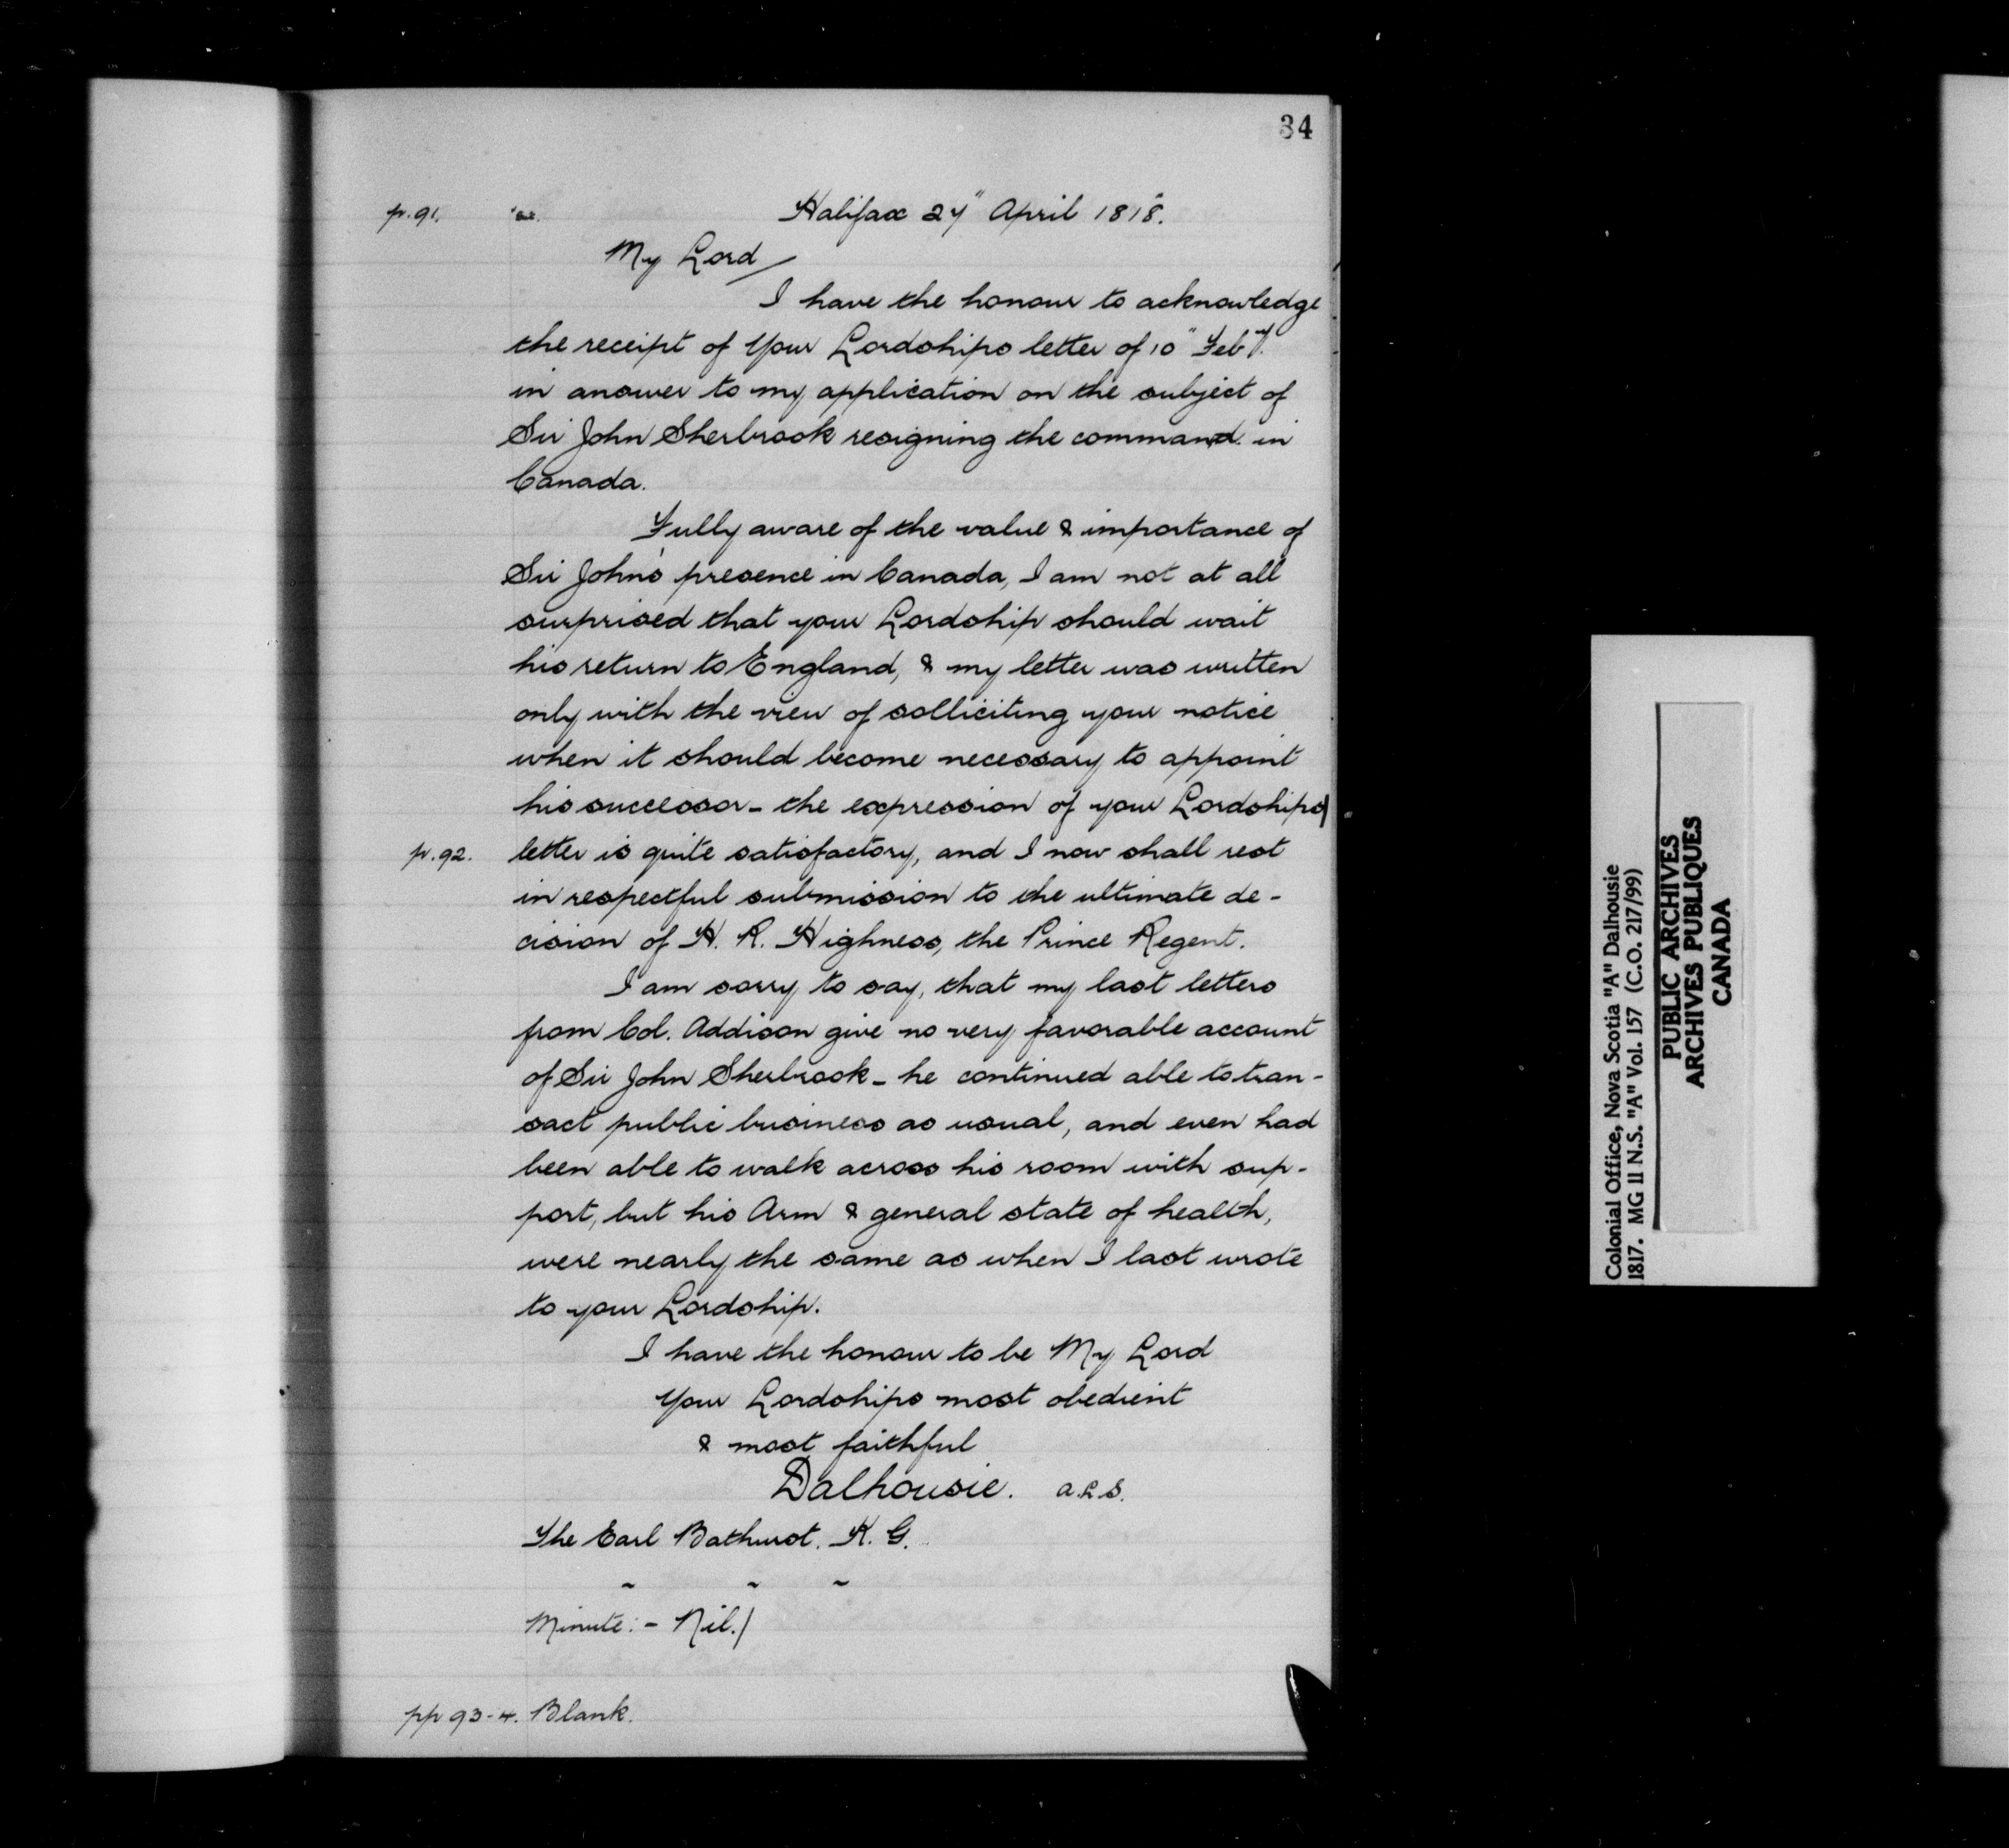 34
p. 91. Halifax 27" April 1818.
My Lord
I have the honour to acknowledge
the receipt of Your Lordships letter of 10" Feby.
in answer to my application on the subject of
Sir John Sherbrook resigning the command in
Canada.
Fully aware of the value & importance of
Sir John's presence in Canada, I am not at all
surprised that your Lordship should wait
his return to England, & my letter was written
only with the view of solliciting your notice
when it should become necessary to appoint
his successor - the expression of your Lordships
p. 92. letter is quite satisfactory, and I now shall rest
in respectful submission to the ultimate de-
cision of H. R. Highness, the Prince Regent.
I am sorry to say, that my last letters
from Col. Addison give no very favorable account
of Sir John Sherbrook - he continued able to tran-
sact public business as usual, and even had
been able to walk across his room with sup-
port, but his Arm & general state of health,
were nearly the same as when I last wrote
to your Lordship.
I have the honour to be My Lord
Your Lordships most obedient
& most faithful
Dalhousie. a.l.s.
The Earl Bathurst. K. G.
Minute: - Nil./
pp 93-4. Blank.
Colonial Office, Nova Scotia "A" Dalhousie
1817. MG 11 N.S. "A" Vol. 157 (C.O. 217/99)
PUBLIC ARCHIVES
ARCHIVES PUBLIQUES
CANADA